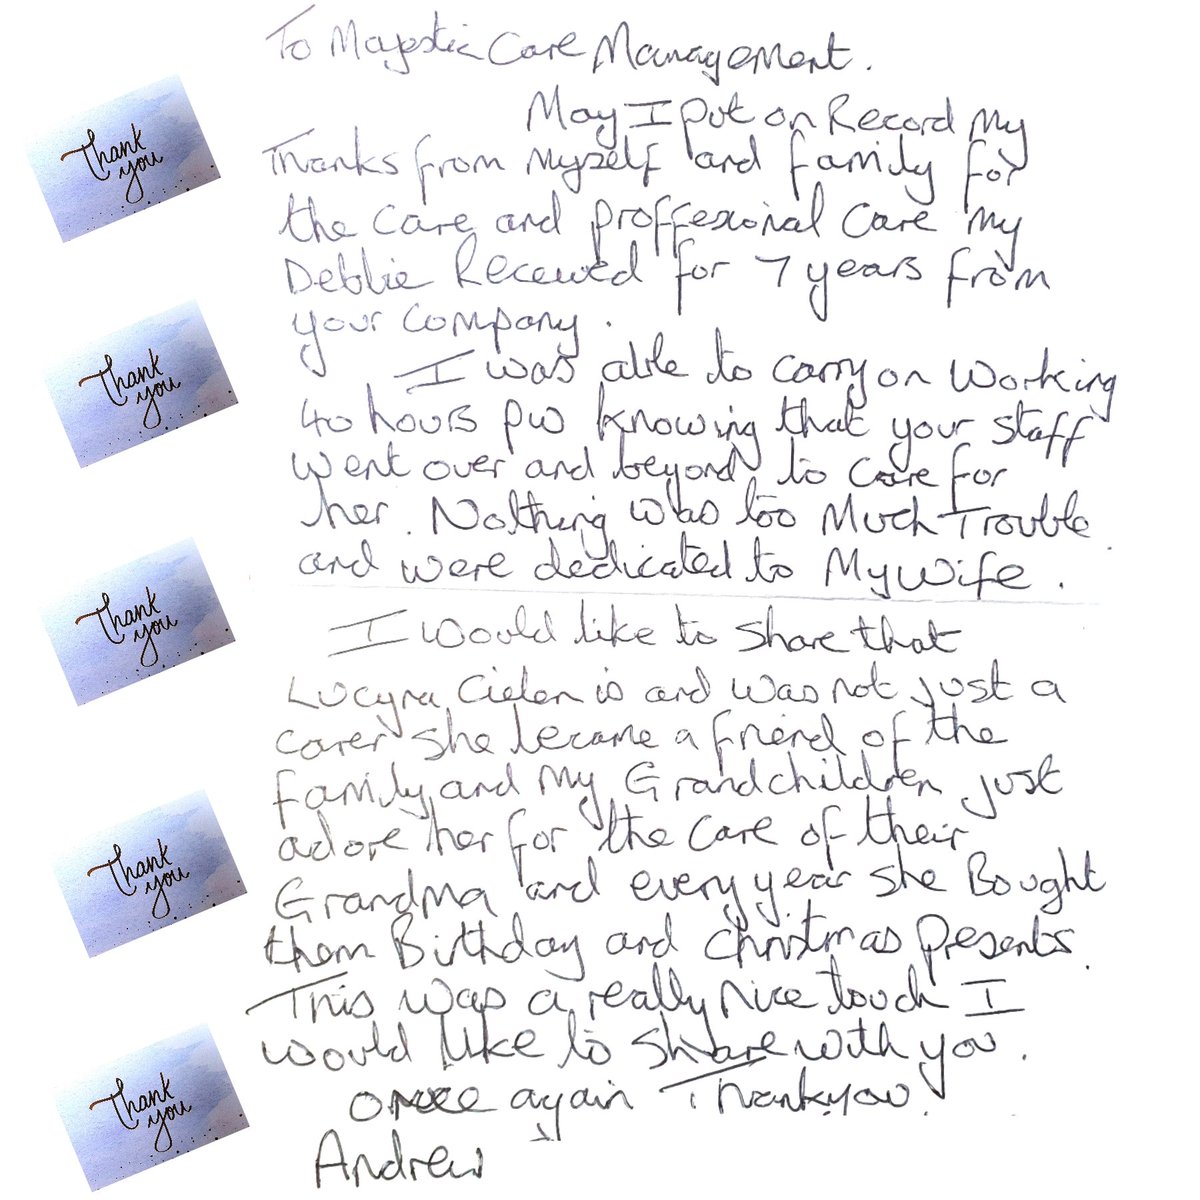 To Majestic Care Management.
May I put on Record my
Thanks from myself and family for
the care and proffesional care my
Debbie Received for 7 years from
your company.
I was able to carry on working
40 hours pw knowing that your staff
went over and beyond to care for
her. Nothing was too Much Trouble
and were dedicated to My wife.
I would like to share that
Lucyna Cielen is and was not just a
carer she became a friend of the
family and my Grandchildren just
adore her for the care of their
Grandma and every year she Bought
them Birthday and christmas presents.
This was a really nice touch I
would like to share with you.
once again Thankyou.
Andrew
Thank
you
Thank
you
Thank
you
Thank
you
Thank
you